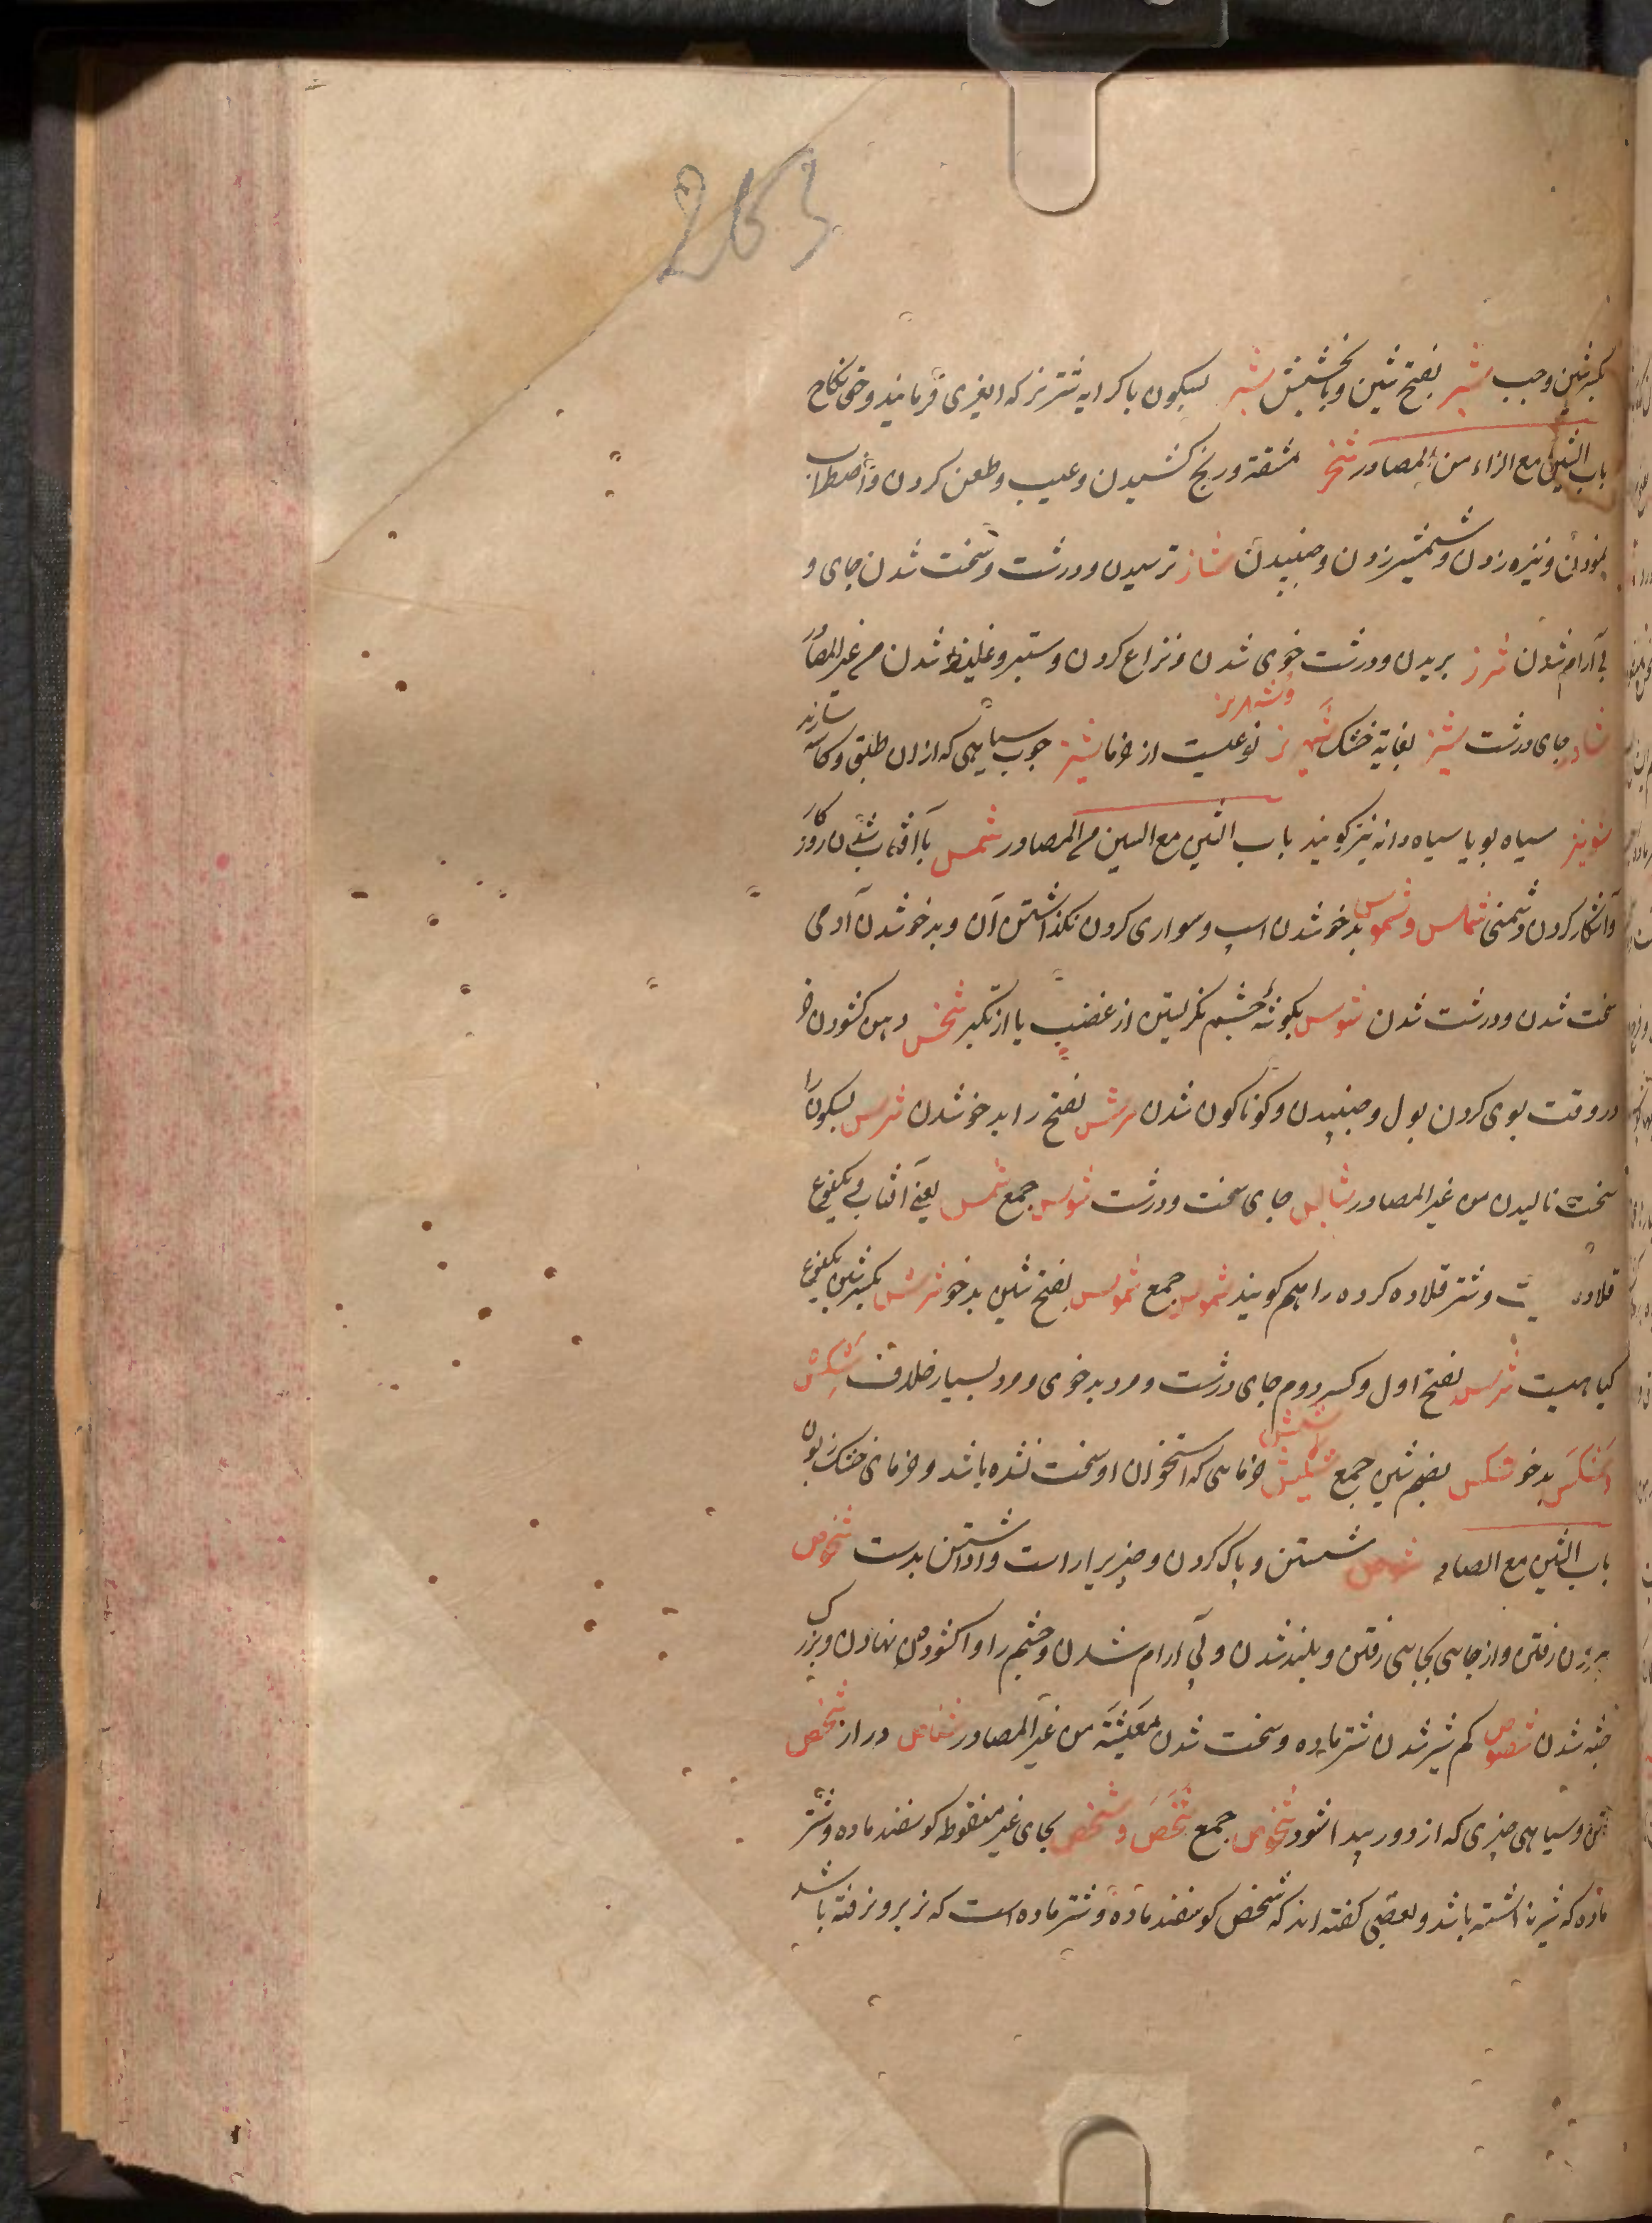 263
بکسر شین وجب شبر بفتح شین وبا بخشیش شبر بسکون با کرایه شتر نر که از بهر فرمایند وحق نکاح
باب الشین مع الزاء من المصادر شخز مشقة ورنج کشیدن وعیب وطعن کردن واضطراب
نمودن ونیزه زدن وشمشیر زدن وجنبیدن شاز ترسیدن ودرشت وسخت شدن جای و
بی آرام شدن شرز بریدن ودرشت خوی شدن ونزاع کردن وستبر وغلیظ شدن من غیر المصادر
شاز جای درشت بغایة خشک شهریز وشهریز نوعیست از خرما شیز چوب سیاهی که ازان طبق وکاسه سازند
شونیز سیاه بویا سیاه دانه نیز کویند باب الشین مع السین من المصادر شمس با آفتاب شدن روز
وآشکار کردن دشمنی شماس وشموس بدخو شدن اسپ وسواری کردن نکذاشتن آن وبدخو شدن آدمی
سخت شدن ودرشت شدن شوس بکوشهٔ چشم نکریستن از غضب یا از تکبر شخس دهن کشودن خر
در وقت بوی کردن بول وجنبیدن وکوناکون شدن شرس بفتح را بدخو شدن شرس بسکون را
سخت مالیدن من غیر المصادر جای سخت ودرشت شموس جمع شمس یعنی آفتاب ویکنوع
قلاده وشتر قلاده کرده را هم کویند شموس جمع شموس بفتح شین بدخو شرس بکسر شین یکنوع
کیاهیست شرس بفتح اول وکسر دوم جای درشت ومرد بدخوی ومرد بسیار خلاف شکس
بدخو شکس بضم شین جمع خرمایی که استخوان او سخت نشده باشد وخرمای خشک بون
باب الشین مع الصاد شوص شستن وپاک کردن وچیزی را راست واداشتن بدست شخوص
بیرون رفتن واز جایی بجایی رفتن وبلند شدن وبی آرام شدن وچشم را واکشوده نهادن وبزرک
جثه شدن شصوص کم شیر شدن شتر ماده وسخت شدن معیشة من غیر المصادر دراز شخص
تن وسیاهی چیزی که از دور پیدا شود شخوص جمع شخص وشحص بحای غیر منقوطه کوسفند ماده وشتر
ماده که شیر نداشته باشد وبعضی کفته اند که شحص کوسفند ماده وشتر ماده است که نر برو نرفته باشد